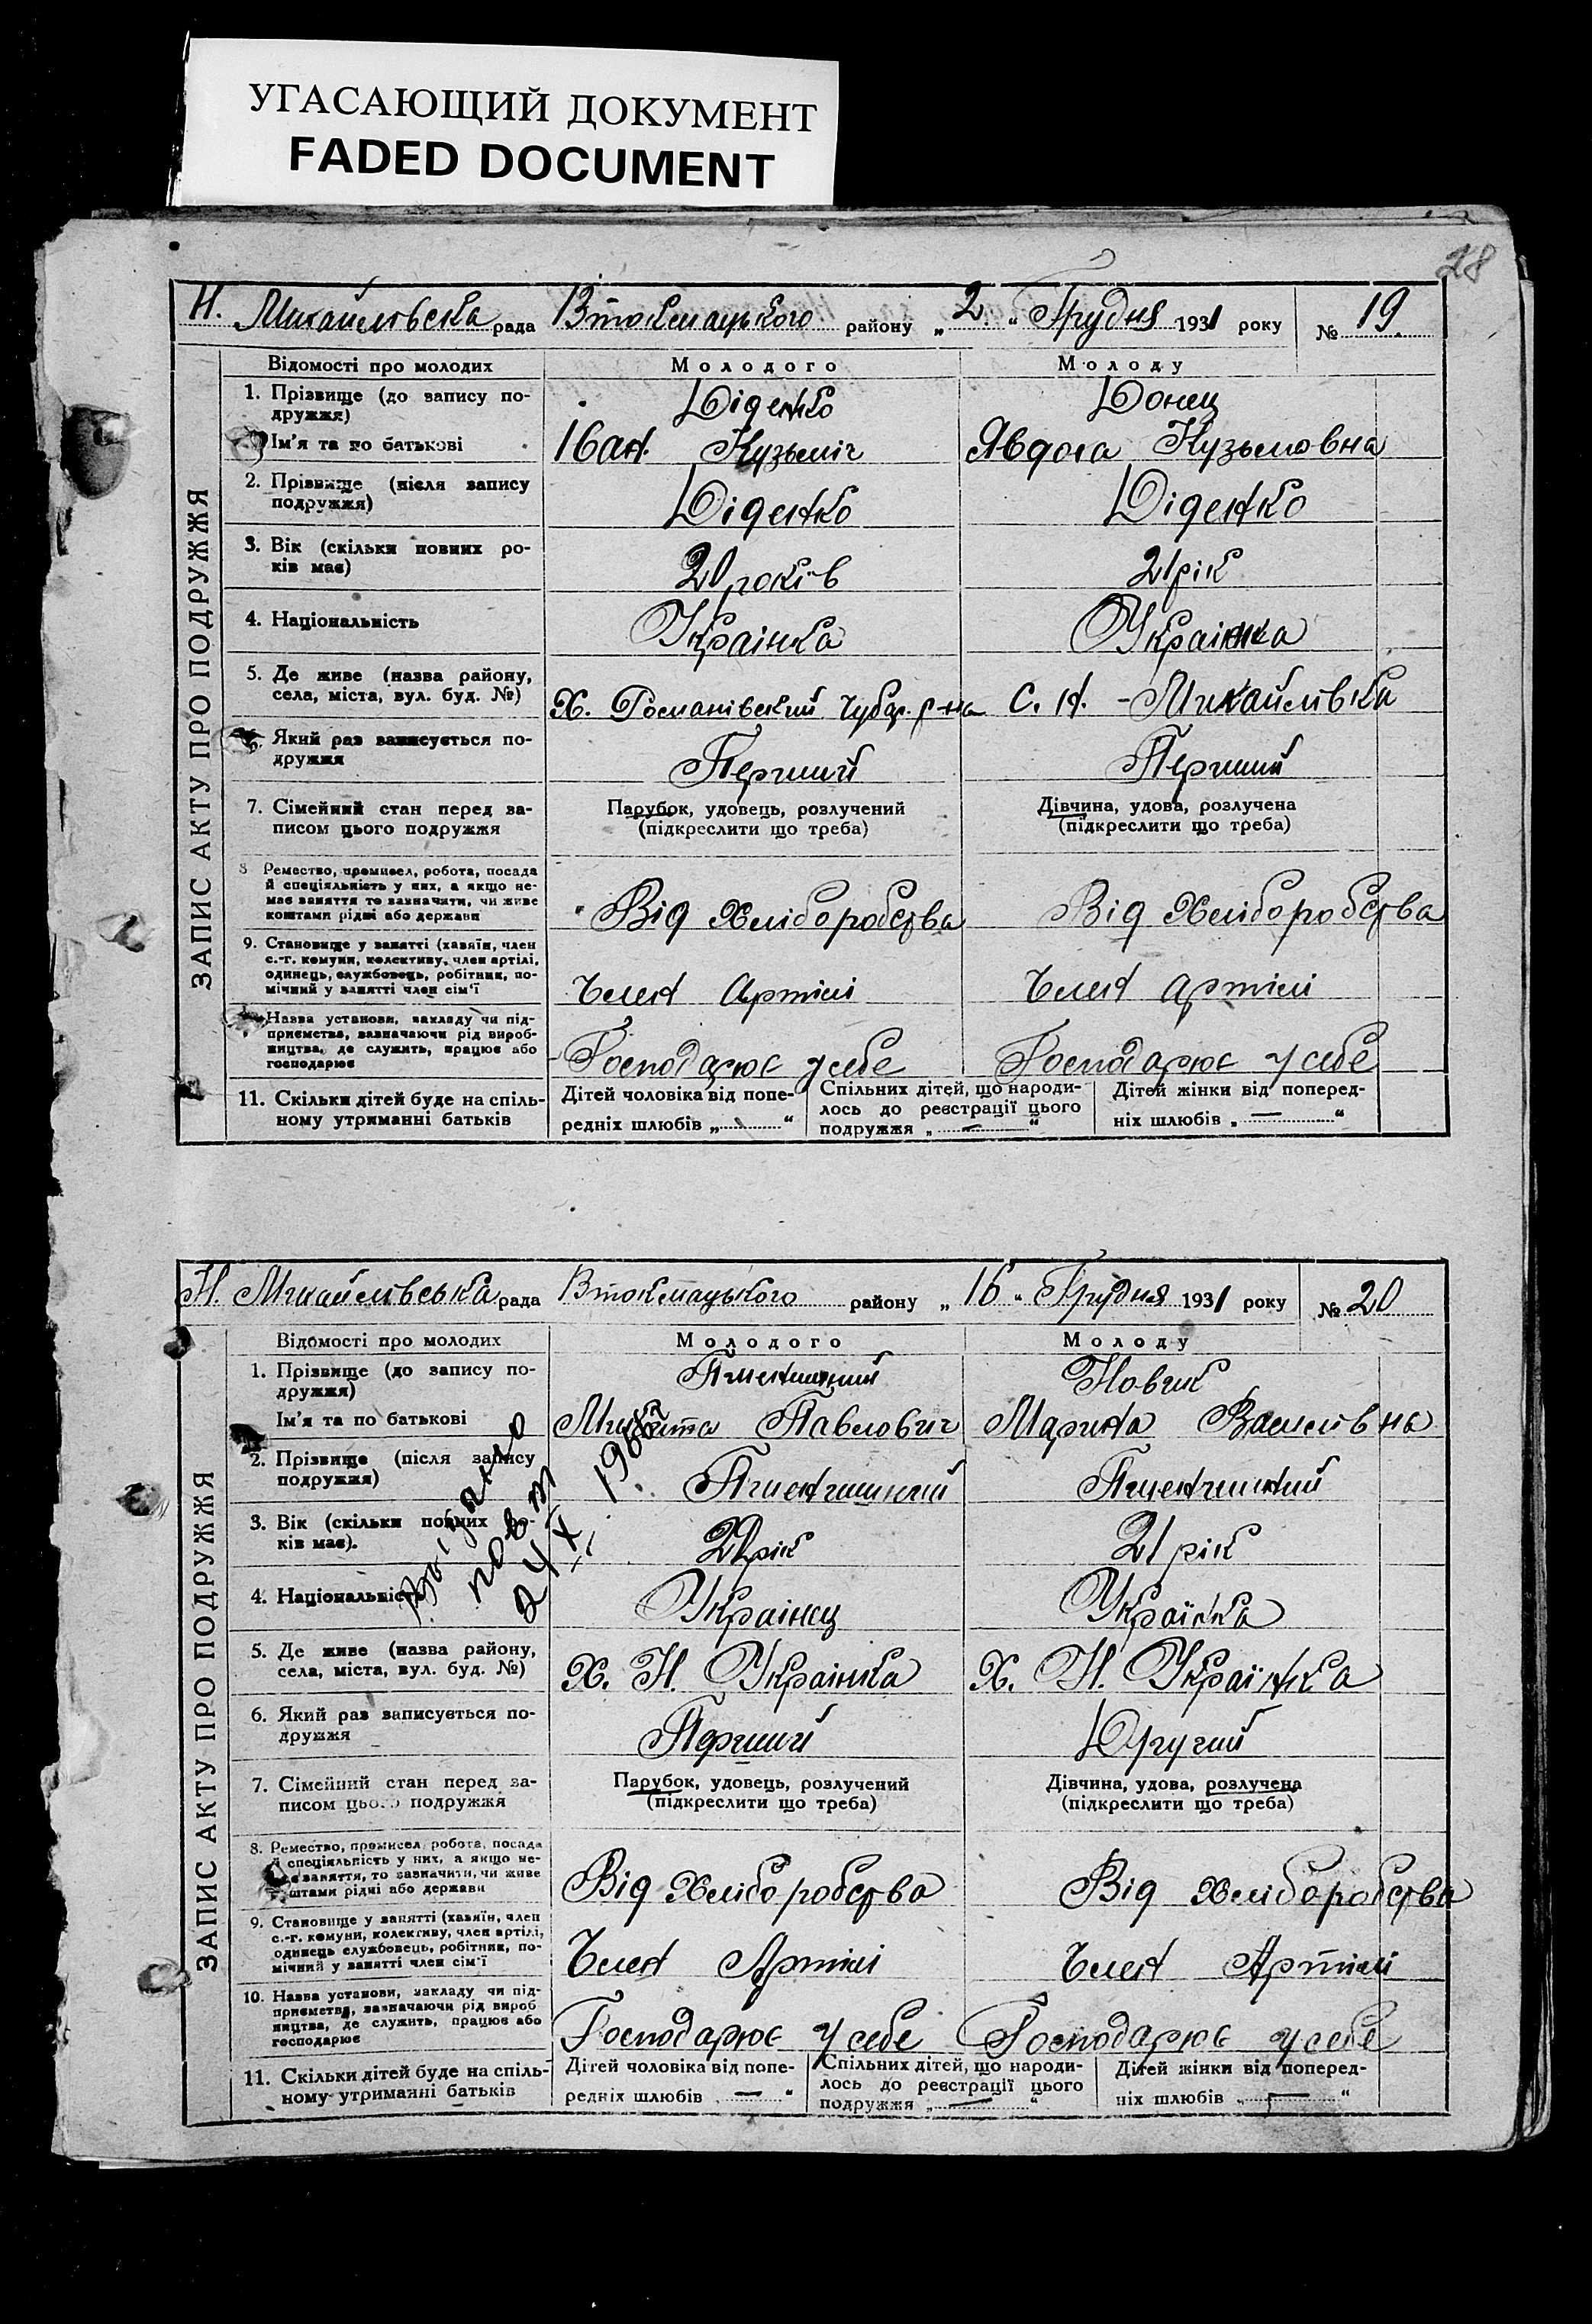 УГАСАЮЩИЙ ДОКУМЕНТ
FADED DOCUMENT
28
Н. Михайлівська рада Втокмацького району „2.“ Грудня 1931 року № 19.
ЗАПИС АКТУ ПРО ПОДРУЖЖЯ
Відомості про молодих Молодого Молоду
1. Прізвище (до запису по-
дружжя) Діденко Донец
Ім'я та по батькові Іван Кузьміч Явдоха Кузьмовна
2. Прізвище (після запису
подружжя) Діденко Діденко
3. Вік (скільки повних ро-
ків має) 20 років 21 рік
4. Національність Українка Українка
5. Де живе (назва району,
села, міста, вул. буд. №) Х. Романівский Чубар. р-на с. Н.-Михайлівка
Який раз записується по-
дружжя Перший Перший
7. Сімейний стан перед за-
писом цього подружжя
Парубок, удовець, розлучений Дівчина, удова, розлучена
(підкреслити що треба) (підкреслити що треба)
8 Ремество, промисел, робота, посада
й спеціяльність у них, а якщо не-
має заняття то зазначити, чи живе
коштами рідні або держави Від Хліборобства Від Хліборобства
9. Становище у занятті (хазяїн, член
с.-г. комуни, колективу, член артілі,
одинець, службовець, робітник, по-
мічний у занятті член сім'ї Член Артілі Член Артілі
Назва установи, закладу чи під-
приємства, зазначаючи рід вироб-
ництва, де служить, працює або
господарює Господарює у себе Господарює у себе
11. Скільки дітей буде на спіль-
ному утриманні батьків
Дітей чоловіка від попе-
редніх шлюбів „ “
Спільних дітей, що народи-
лось до реєстрації цього
подружжя „ — “
Дітей жінки від поперед-
ніх шлюбів „ — “
Н. Михайлівська рада Втокмацького району „16“ Грудня 1931 року № 20
ЗАПИС АКТУ ПРО ПОДРУЖЖЯ
Відомості про молодих Молодого Молоду
1. Прізвище (до запису по-
дружжя) Новик
Ім'я та по батькові Микита Павлович Марина Василівна
2. Прізвище (після запису
подружжя)
3. Вік (скільки повних ро-
ків має). рік 21 рік
4. Національність Українец Українка
5. Де живе (назва району,
села, міста, вул. буд. №) Х. Н. Українка Х. Н. Українка
6. Який раз записується по-
дружжя Перший Другий
7. Сімейний стан перед за-
писом цього подружжя
Парубок, удовець, розлучений Дівчина, удова, розлучена
(підкреслити що треба) (підкреслити що треба)
8. Ремество, промисел, робота, посада
й спеціяльність у них, а якщо не-
має заняття, то зазначити, чи живе
коштами рідні або держави Від Хліборобства Від Хліборобства
9. Становище у занятті (хазяїн, член
с.-г. комуни, колективу, член артілі,
одинець службовець, робітник, по-
мічний у занятті член сім'ї Член Артілі Член Артілі
10. Назва установи, закладу чи під-
приємства, зазначаючи рід вироб
ництва, де служить, працює або
господарює Господарює у себе Господарює у себе
11. Скільки дітей буде на спіль-
ному утриманні батьків
Дітей чоловіка від попе-
редніх шлюбів „ — “
Спільних дітей, що народи-
лось до реєстрації цього
подружжя „ — “
Дітей жінки від поперед-
ніх шлюбів „ — “
Видано
повт
24 XI